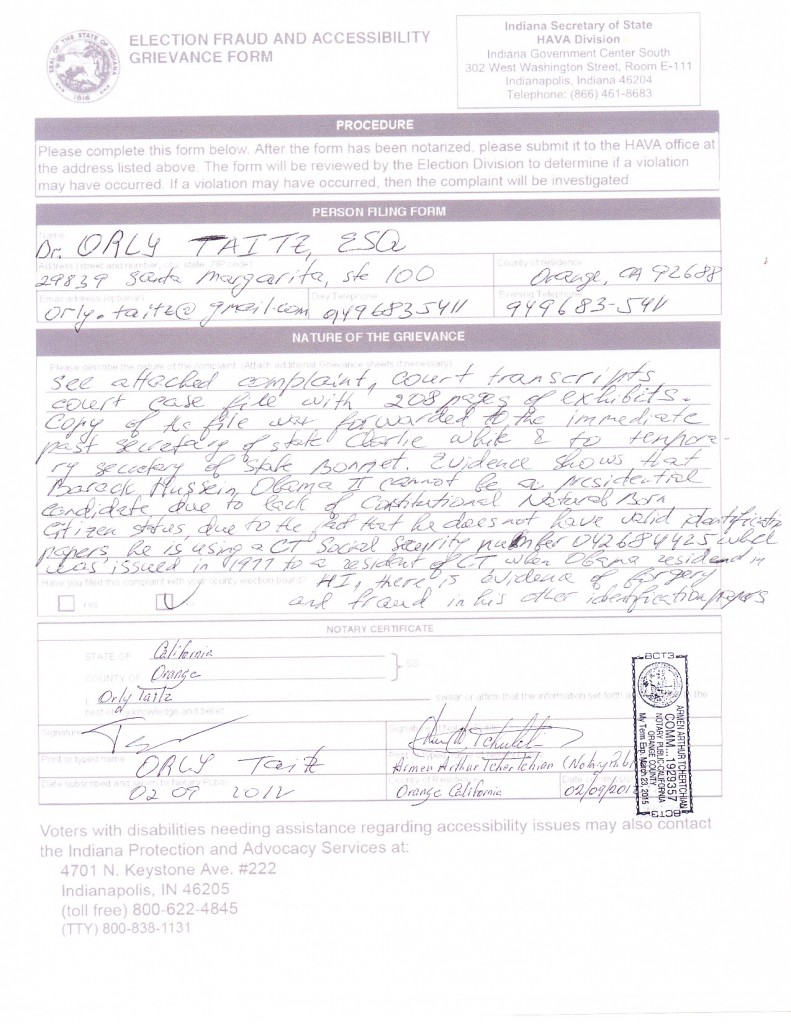 ELECTION FRAUD AND ACCESSIBILITY
GRIEVANCE FORM
Indiana Secretary of State
HAVA Division
Indiana Government Center South
302 West Washington Street, Room E-111
Indianapolis, Indiana 46204
Telephone: (866) 461-8683
SEAL OF THE STATE OF INDIANA
1816
PROCEDURE
Please complete this form below. After the form has been notarized, please submit it to the HAVA office at
the address listed above. The form will be reviewed by the Election Division to determine if a violation
may have occurred. If a violation may have occurred, then the complaint will be investigated
PERSON FILING FORM
Name
Dr. ORLY TAITZ, ESQ
Address (street and number, city, state, ZIP code) County of residence
29839 Santa Margarita, ste 100 Orange, CA 92688
Email address (optional) Day Telephone Evening Telephone
orly.taitz@gmail.com 949 683 5411 949 683-5411
NATURE OF THE GRIEVANCE
Please describe the nature of the complaint. (Attach additional Grievance sheets if necessary)
See attached complaint, court transcripts
court case file with 208 pages of exhibits.
Copy of the file was forwarded to the immediate
past secretary of state Charlie White & to tempora-
ry secretary of state Bonnet. Evidence shows that
Barack Hussein Obama II cannot be a presidential
candidate, due to lack of Constitutional Natural Born
Citizen status, due to the fact that he does not have valid identification
papers he is using a CT Social Security number 042684425 which
was issued in 1977 to a resident of CT when Obama resided in
HI, there is evidence of forgery
and fraud in his other identification papers
Have you filed this complaint with your county election board?
Yes
NOTARY CERTIFICATE
STATE OF California
SS
COUNTY OF Orange
I, Orly Taitz swear or affirm that the information set forth the
best of knowledge and belief.
Signature
Print or typed name
ORLY Taitz Armen Arthur Tchertchian (Notary Pub
Date subscribed and Notary Public
02 09 2012 Orange California 02/09/201
BCT3
ARMEN ARTHUR TCHERTCHIAN
COMM. 1929357
NOTARY PUBLIC-CALIFORNIA
ORANGE COUNTY
My Term Exp. March 23, 2015
BCT3
Voters with disabilities needing assistance regarding accessibility issues may also contact
the Indiana Protection and Advocacy Services at:
4701 N. Keystone Ave. #222
Indianapolis, IN 46205
(toll free) 800-622-4845
(TTY) 800-838-1131